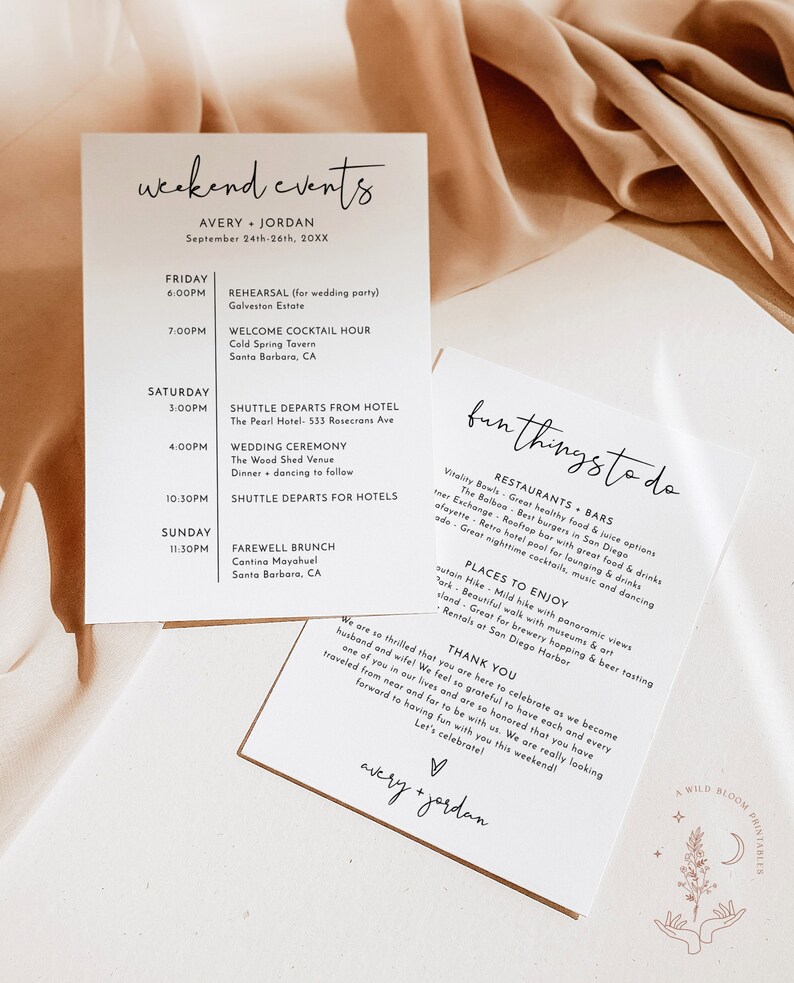 weekend events
AVERY + JORDAN
September 24th-26th, 20XX
FRIDAY
6:00PM REHEARSAL (for wedding party)
Galveston Estate
7:00PM WELCOME COCKTAIL HOUR
Cold Spring Tavern
Santa Barbara, CA
SATURDAY
3:00PM SHUTTLE DEPARTS FROM HOTEL
The Pearl Hotel- 533 Rosecrans Ave
4:00PM WEDDING CEREMONY
The Wood Shed Venue
Dinner + dancing to follow
10:30PM SHUTTLE DEPARTS FOR HOTELS
SUNDAY
11:30PM FAREWELL BRUNCH
Cantina Mayahuel
Santa Barbara, CA
fun things to do
RESTAURANTS + BARS
Vitality Bowls - Great healthy food & juice options
The Balboa - Best burgers in San Diego
Exchange - Rooftop bar with great food & drinks
- Retro hotel pool for lounging & drinks
- Great nighttime cocktails, music and dancing
PLACES TO ENJOY
Hike - Mild hike with panoramic views
Park - Beautiful walk with museums & art
- Great for brewery hopping & beer tasting
Rentals at San Diego Harbor
THANK YOU
We are so thrilled that you are here to celebrate as we become
husband and wife! We feel so grateful to have each and every
one of you in our lives and are so honored that you have
traveled from near and far to be with us. We are really looking
forward to having fun with you this weekend!
Let's celebrate!
avery + jordan
A WILD BLOOM PRINTABLES